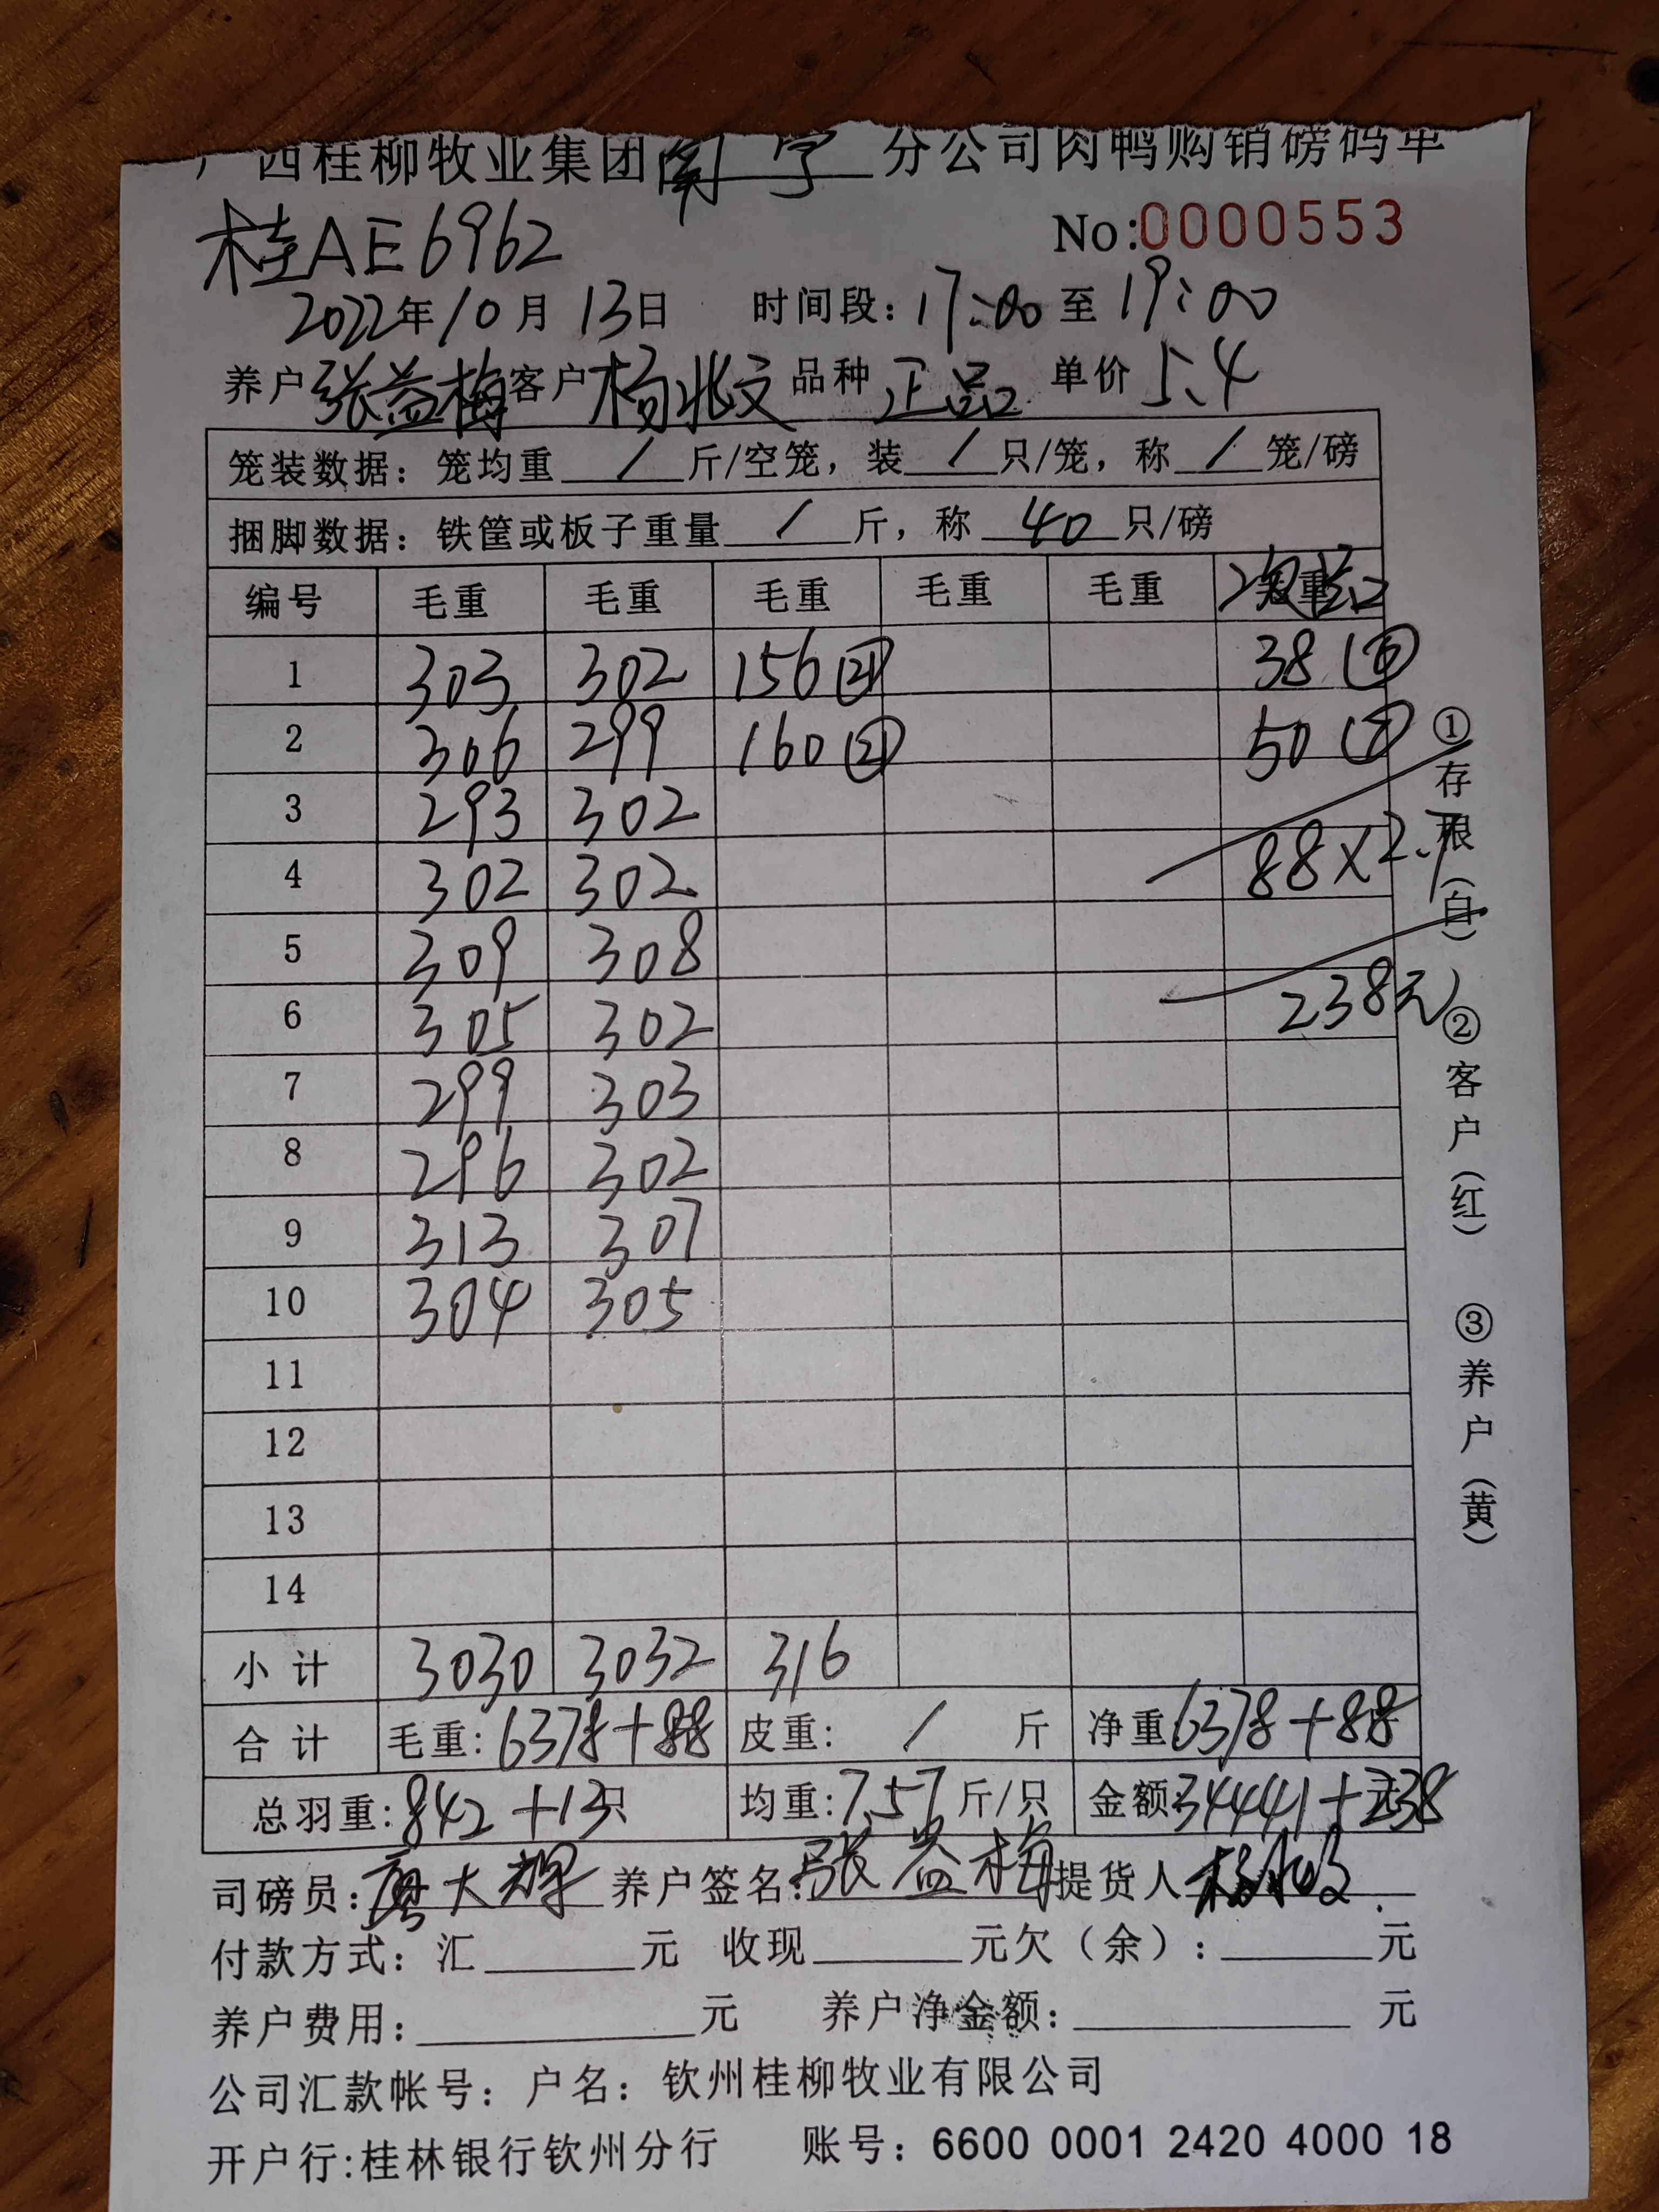 广西桂柳牧业集团南宁分公司肉鸭购销磅码单
桂AE6962 No:0000553
2022年10月13日 时间段：17:00至19:00
养户张益梅客户杨兆文品种正品单价5.4
笼装数据：笼均重/斤/空笼，装/只/笼，称/笼/磅
捆脚数据：铁筐或板子重量/斤，称40只/磅
编号 毛重 毛重 毛重 毛重 毛重
1 303 302 156㉑ 38⑥
2 306 299 160㉑ 50⑦
3 293 302
4 302 302 88×2.7
5 309 308
6 305 302 238元
7 299 303
8 296 302
9 313 307
10 304 305
11
12
13
14
小计 3030 3032 316
合计 毛重：6378+88 皮重：/斤 净重6378+88
总羽重：842+13只 均重：7.57斤/只 金额34441+238
司磅员：廖大辉 养户签名：张益梅 提货人
付款方式：汇 元 收现 元欠（余）： 元
养户费用： 元 养户净金额： 元
公司汇款帐号：户名：钦州桂柳牧业有限公司
开户行:桂林银行钦州分行 账号：6600 0001 2420 4000 18
①存根（白）②客户（红）③养户（黄）